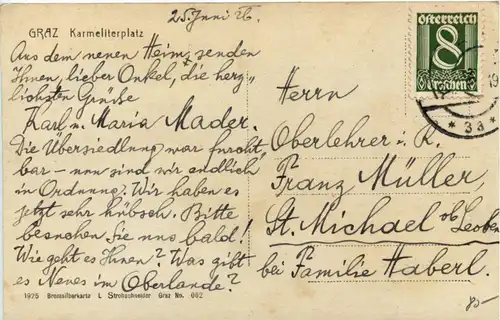 25. Juni 26.
GRAZ Karmeliterplatz
Aus dem neuen Heim senden
Ihnen, lieber Onkel, die herz-
lichsten Grüße
Karl u. Maria Mader.
Die Übersiedlung war furcht-
bar - nun sind wir endlich
in Ordnung. Wir haben es
jetzt sehr hübsch. Bitte
besuchen Sie uns bald!
Wie geht es Ihnen? Was gibt
es Neues im Oberlande?
1925 Bromsilberkarte L. Strohschneider Graz No. 602
österreich
8
Groschen
* 3a *
Herrn
Oberlehrer i. R.
Franz Müller,
St. Michael ob Leoben
bei Familie Haberl.